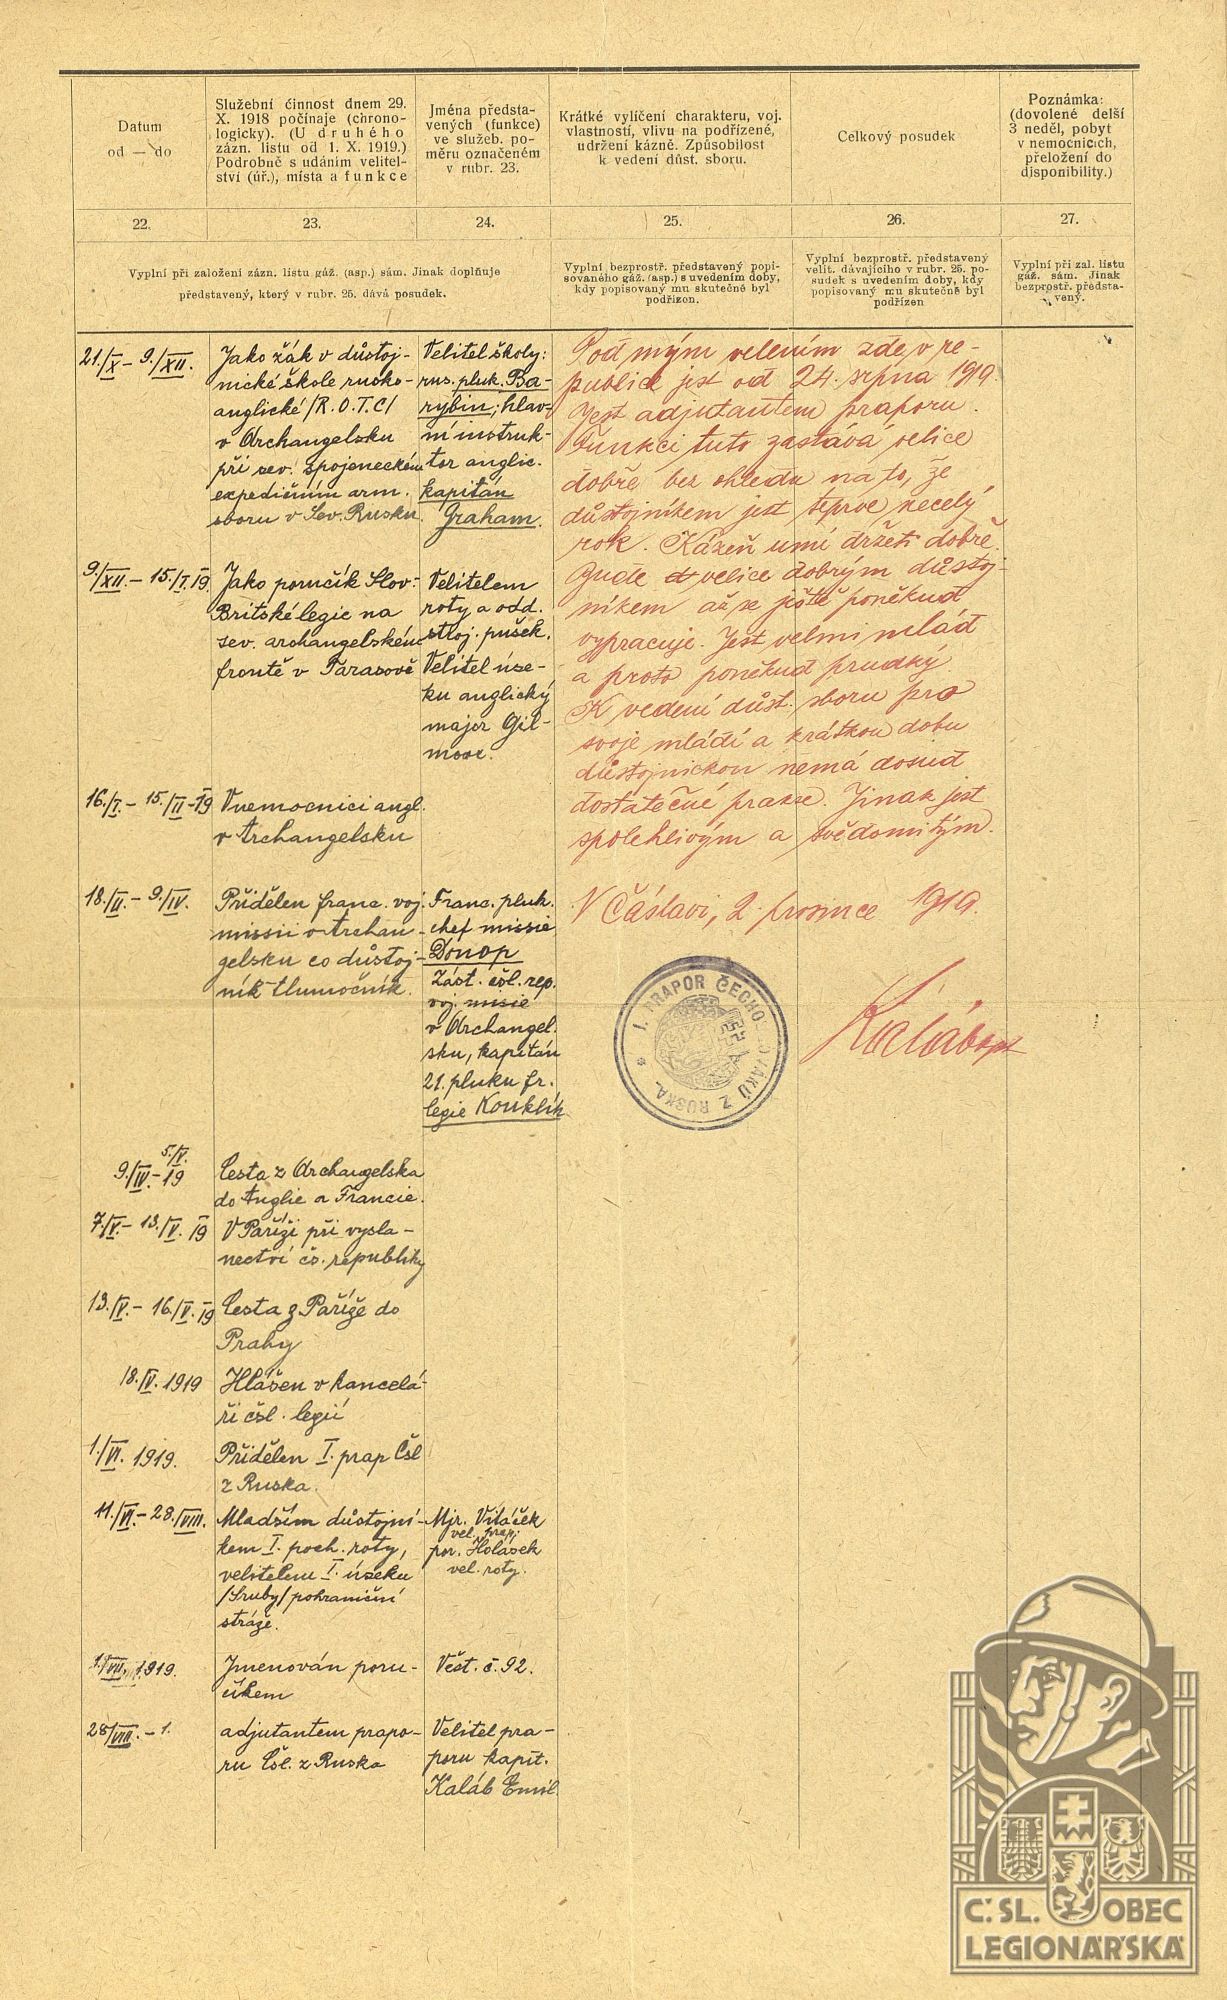 Datum
od — do
Služební činnost dnem 29.
X. 1918 počínaje (chrono-
logicky). (U druhého
zázn. listu od 1. X. 1919.)
Podrobně s udáním velitel-
ství (úř.), místa a funkce
Jména předsta-
vených (funkce)
ve služeb. po-
měru označeném
v rubr. 23.
Krátké vylíčení charakteru, voj.
vlastností, vlivu na podřízené,
udržení kázně. Způsobilost
k vedení důst. sboru.
Celkový posudek
Poznámka:
(dovolené delší
3 neděl, pobyt
v nemocnicích,
přeložení do
disponibility.)
22.
23.
24.
25.
26.
27.
Vyplní při založení zázn. listu gáž. (asp.) sám. Jinak doplňuje
představený, který v rubr. 25. dává posudek.
Vyplní bezprostř. představený popi-
sovaného gáž. (asp.) s uvedením doby,
kdy popisovaný mu skutečně byl
podřízen.
Vyplní bezprostř. představený
velit. dávajícího v rubr. 25. po-
sudek s uvedením doby, kdy
popisovaný mu skutečně byl
podřízen
Vyplní při zal. listu
gáž. sám. Jinak
bezprostř. předsta-
vený.
21./X – 9./XII.
Jako žák v důstoj-
nické škole rusko-
anglické /R.O.T.C/
v Archangelsku
při sev. spojeneckém
expedičním arm.
sboru v Sev. Rusku
Velitel školy:
rus. pluk. Ba-
rybin; hlav-
ní instruk-
tor anglic.
kapitán
Graham.
9./XII. – 15./I. 19
Jako poručík Slov-
Britské legie na
sev. archangelském
frontě v Tarasově
Velitelem
roty a odd.
stroj. pušek.
Velitel úse-
ku anglický
major Gil-
moor.
16./I. – 15./II – 19
V nemocnici angl.
v Archangelsku
18./II. – 9./IV.
Přidělen franc. voj.
missii v Archan-
gelsku co důstoj-
ník tlumočník.
Franc. pluk.
chef missie
Donop
Zást. čsl. rep.
voj. misie
v Archangel-
sku, kapitán
21. pluku fr.
legie Kouklík
9./IV. – 5./V. 19
Cesta z Archangelska
do Anglie a Francie.
7./V. – 13./V. 19
V Paříži při vysla-
nectví čs. republiky
13./V. – 16./V. 19
Cesta z Paříže do
Prahy
18./V. 1919
Hlášen v kancelá-
ři čsl. legií
1./VI. 1919.
Přidělen I. prap Čsl
z Ruska.
11./VI. – 28./VIII.
Mladším důstojní-
kem I. poch. roty,
velitelem I. úseku
/Sruby/ pohraniční
stráže.
Mjr. Vitáček
vel. prap;
por. Holásek
vel. roty.
1./VII. 1919.
Jmenován poru-
číkem
Věst. č. 92.
28/VIII. – 1.
adjutantem prapo-
ru Čsl. z Ruska
Velitel pra-
poru kapit.
Kaláb Emil
Pod mým velením zde v re-
publice jest od 24. srpna 1919.
Jest adjutantem praporu.
Funkci tuto zastává velice
dobře bez ohledu na to, že
důstojníkem jest teprve necelý
rok. Kázeň umí držeti dobře.
Bude velice dobrým důstoj-
níkem až se ještě poněkud
vypracuje. Jest velmi mlád
a proto poněkud prudký
K vedení důst. sboru pro
svoje mládí a krátkou dobu
důstojnickou nemá dosud
dostatečné prakse. Jinak jest
spolehlivým a svědomitým.
V Čáslavi, 2. prosince 1919.
Kaláb kpt
I. PRAPOR ČECHOSLOVÁKŮ Z RUSKA.
Č.SL. OBEC
LEGIONÁŘSKÁ